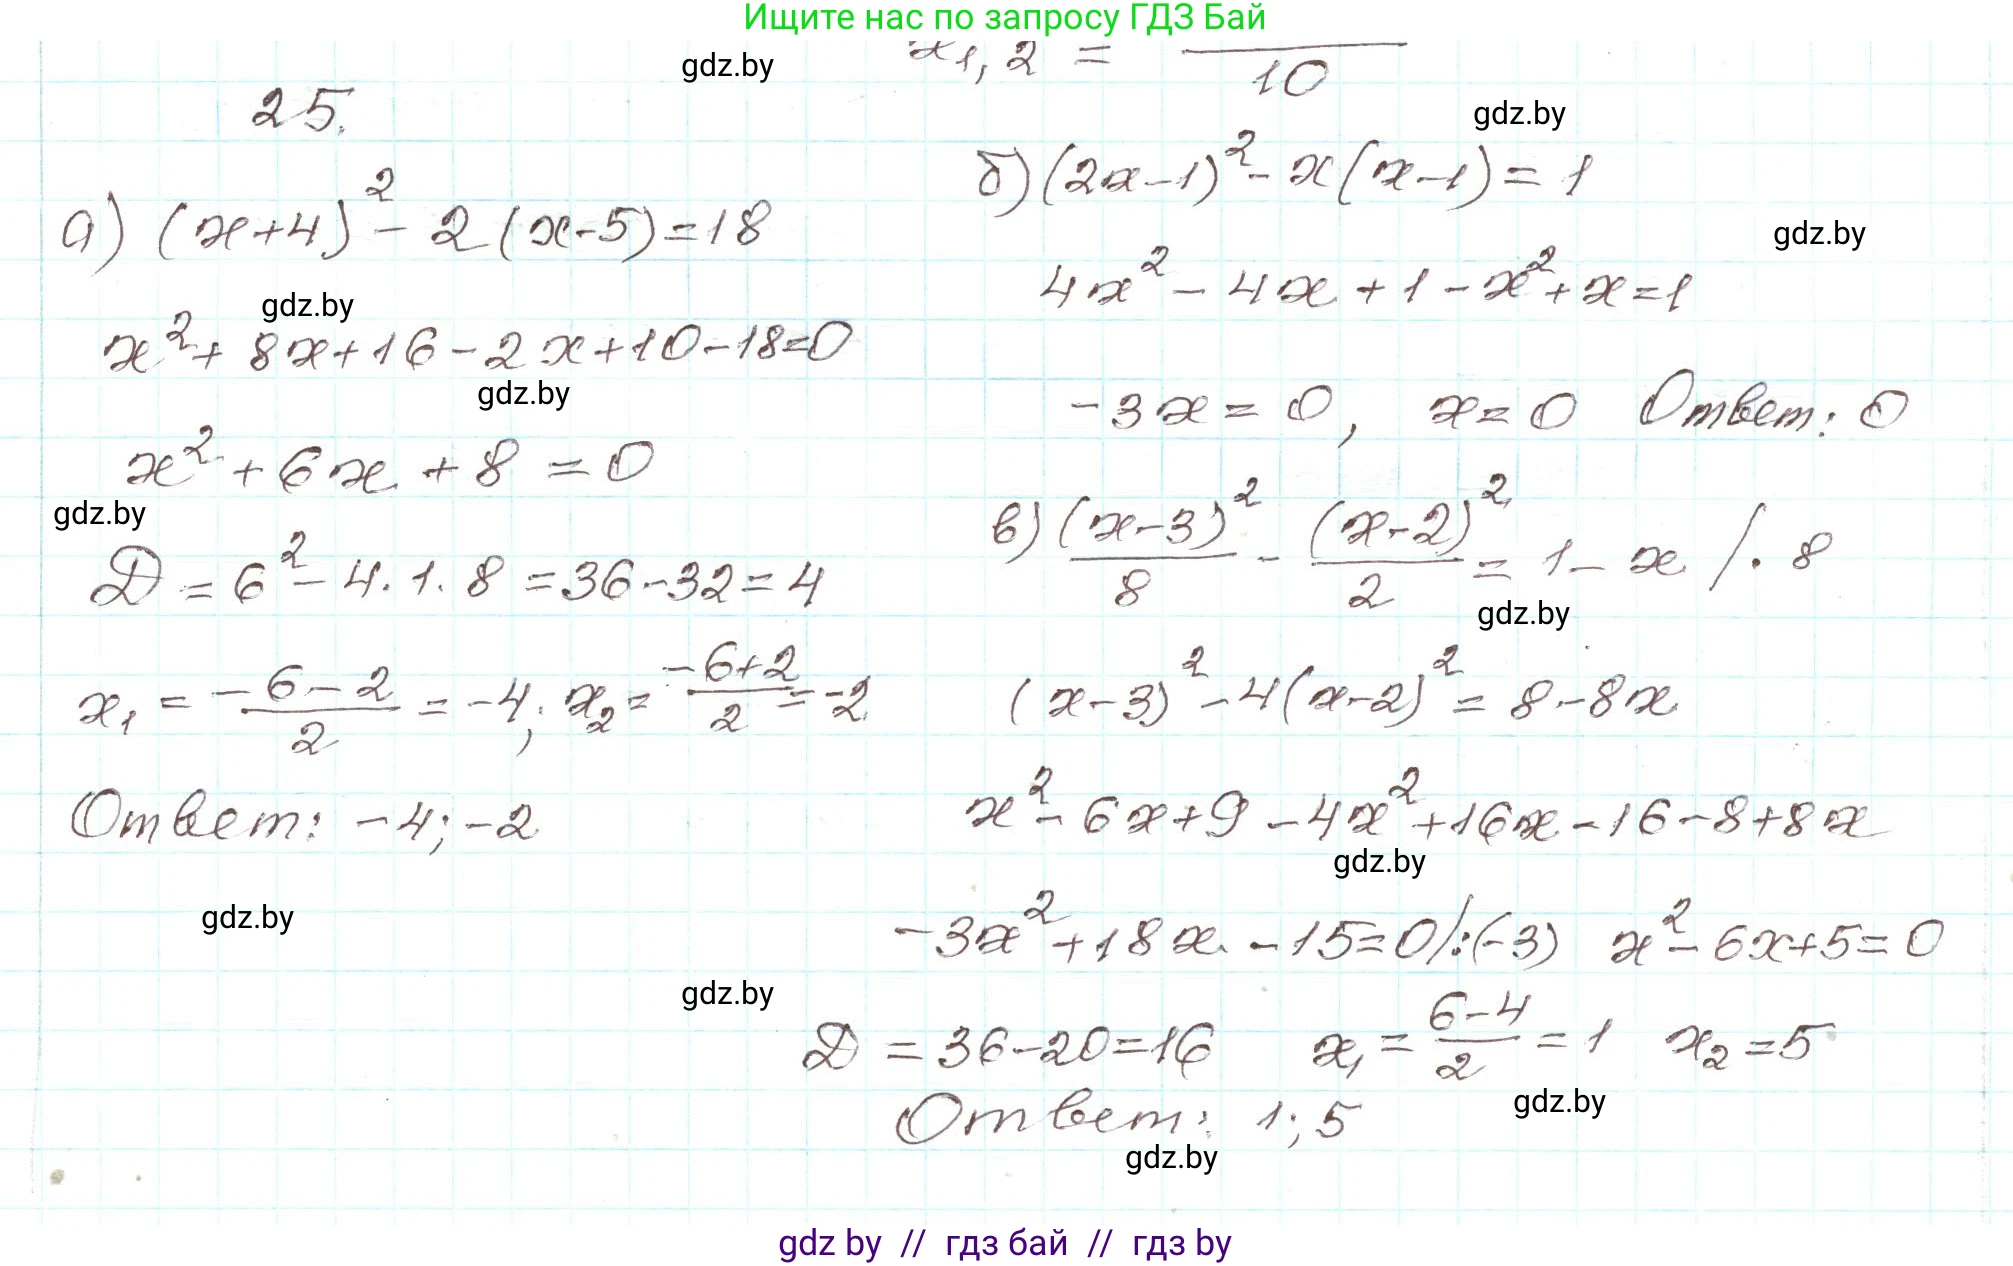 Ищите нас по запросу ГДЗ Бай
x₁,₂ = ―/10
gdz.by
25.
gdz.by
а) (x+4)² - 2(x-5)=18
gdz.by
x² + 8x+16-2x+10-18=0
gdz.by
x² + 6x + 8 = 0
gdz.by
D = 6² - 4·1·8 = 36-32=4
x₁ = (-6-2)/2 = -4; x₂ = (-6+2)/2 = -2
Ответ: -4; -2
gdz.by
б) (2x-1)² - x(x-1) = 1
gdz.by
4x² - 4x + 1 - x² + x = 1
-3x = 0, x = 0 Ответ: 0
в) (x-3)²/8 - (x-2)²/2 = 1 - x /· 8
gdz.by
(x-3)² - 4(x-2)² = 8-8x
x² - 6x+9 - 4x² + 16x - 16 - 8+8x
gdz.by
-3x² + 18x - 15=0/:(-3) x² - 6x+5=0
gdz.by
D = 36-20=16 x₁ = (6-4)/2 = 1 x₂ = 5
gdz.by
Ответ: 1; 5
gdz.by
gdz by // гдз бай // гдз by